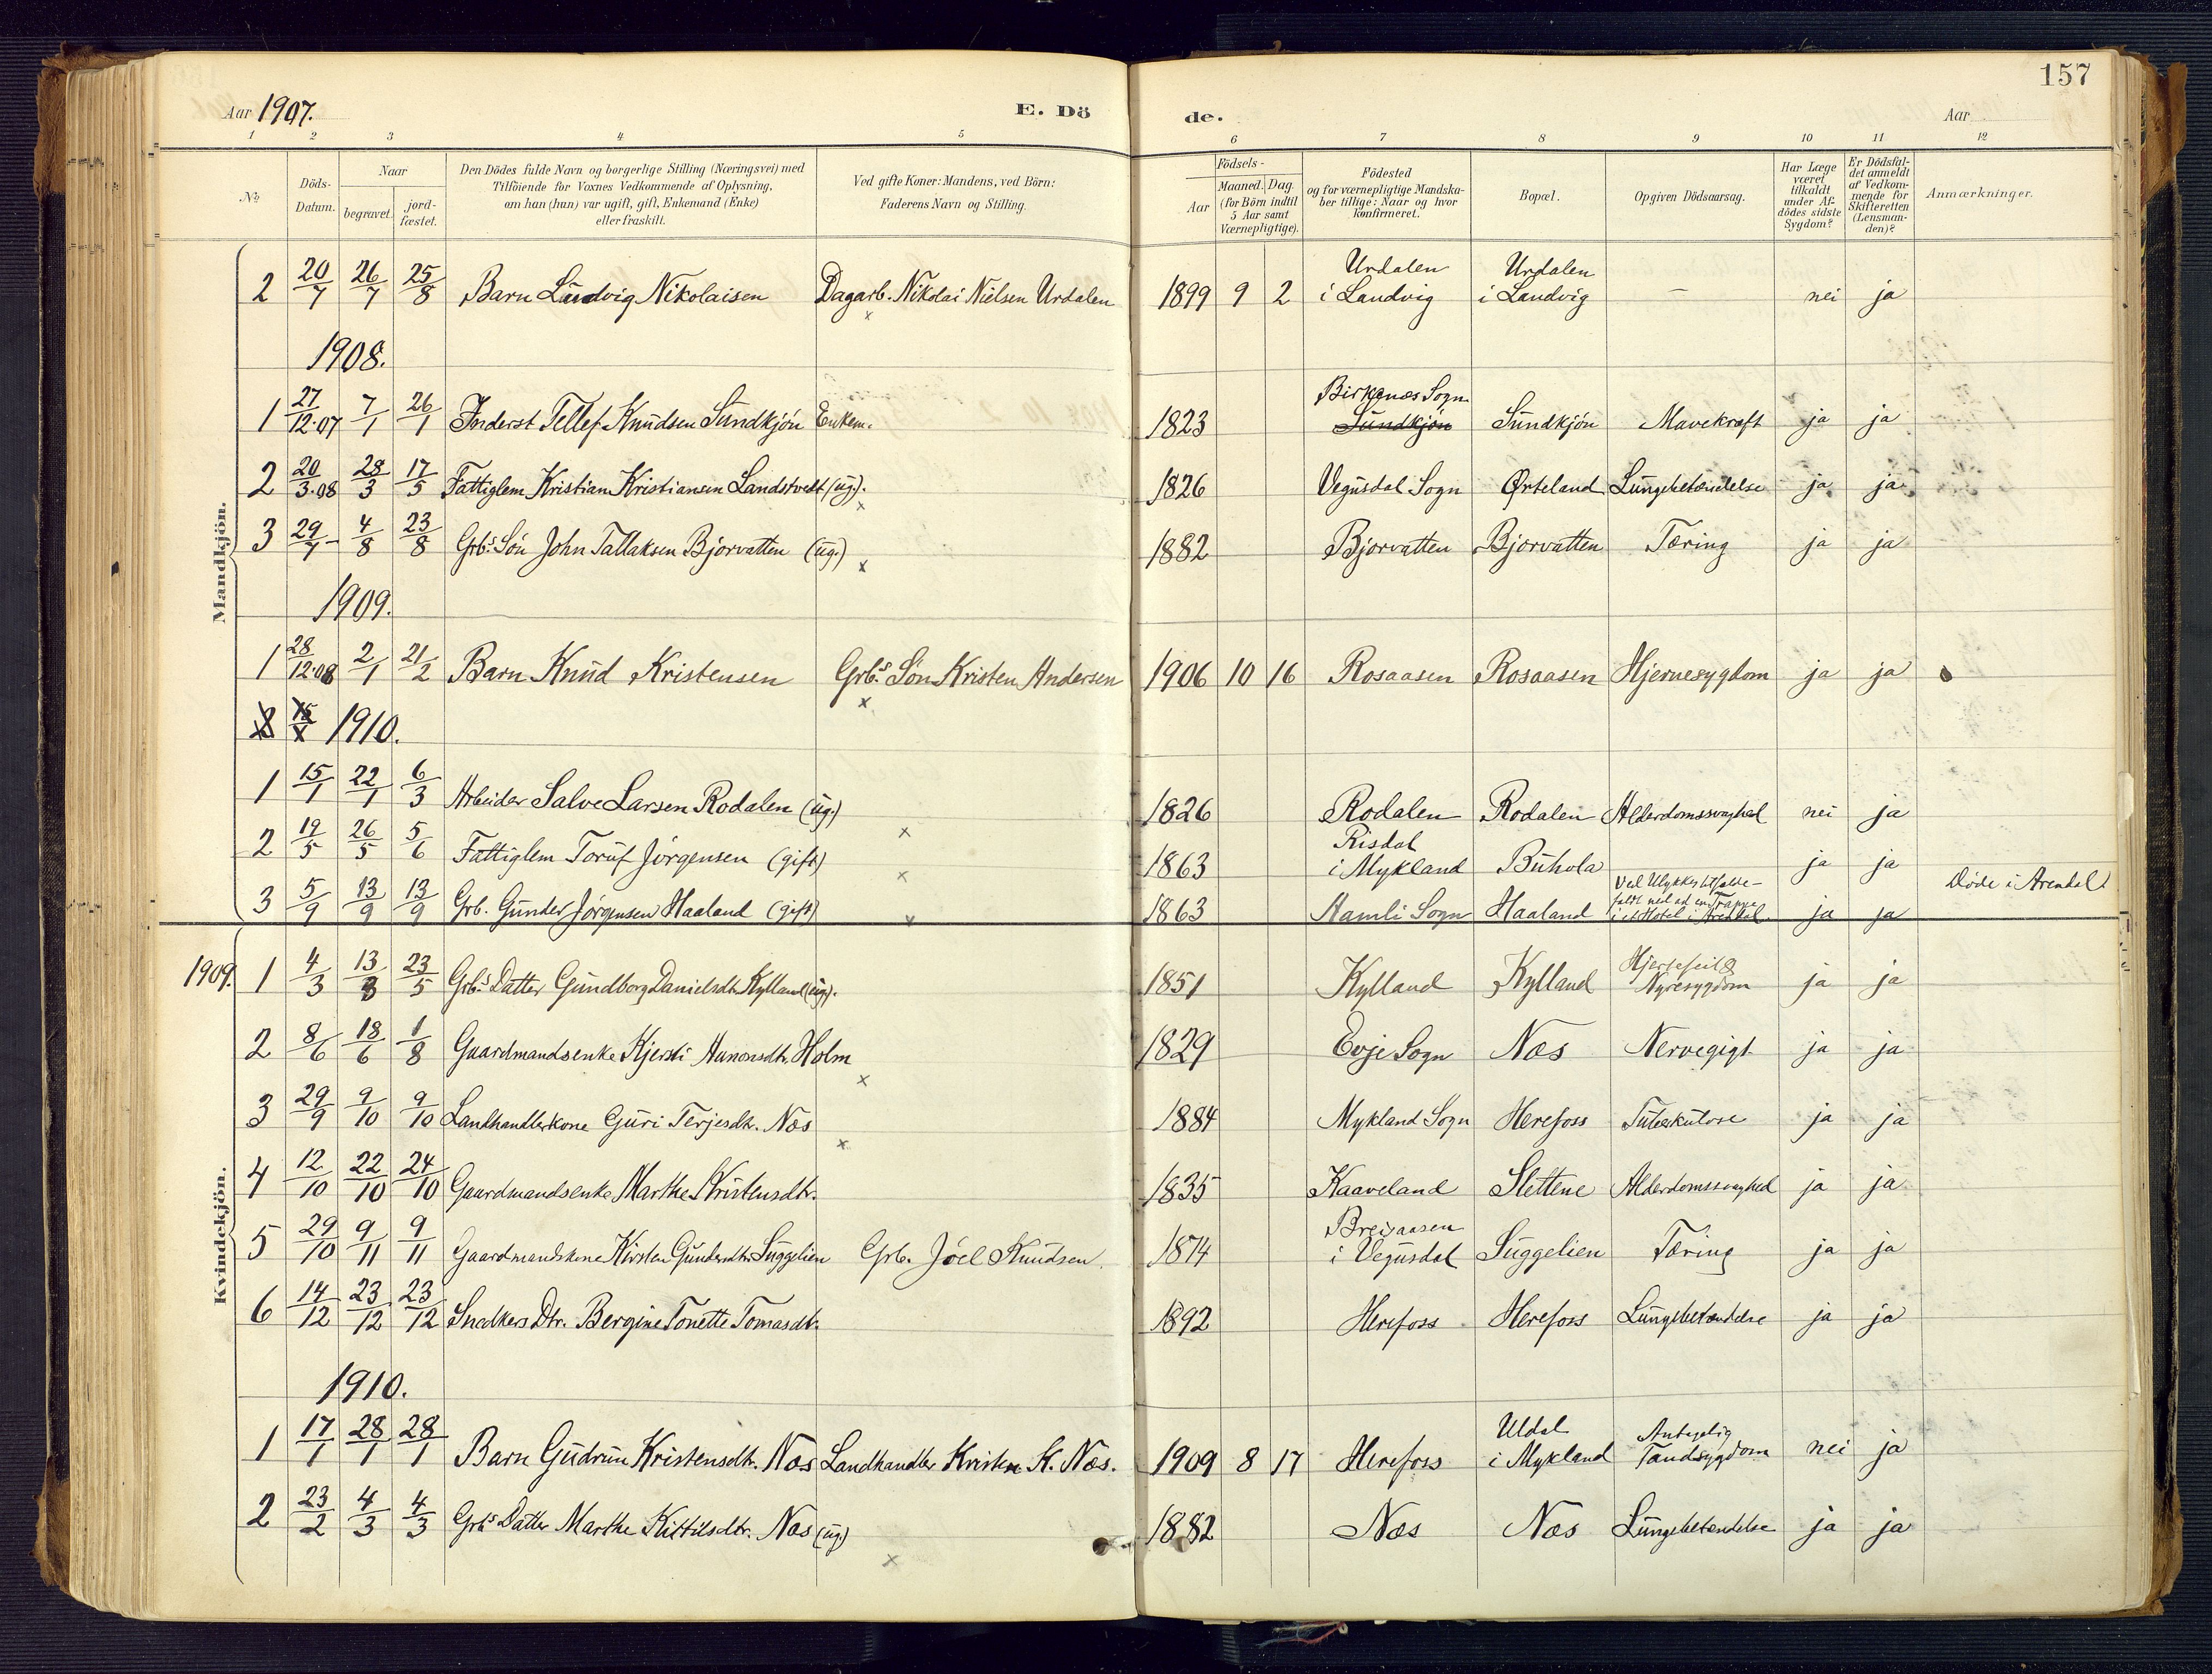 157
Aar 1907. E. Dö de. Aar
1 2 3 4 5 6 7 8 9 10 11 12
No. Döds-Datum. Naar begravet. jord-fæstet. Den Dödes fulde Navn og borgerlige Stilling (Næringsvei) med Tilföiende for Voxnes Vedkommende af Oplysning, om han (hun) var ugift, gift, Enkemand (Enke) eller fraskilt. Ved gifte Koner: Mandens, ved Börn: Faderens Navn og Stilling. Födsels- Aar Maaned. Dag. (for Börn indtil 5 Aar samt Værnepligtige). Födested og for værnepligtige Mandska-ber tillige: Naar og hvor konfirmeret. Bopæl. Opgiven Dödsaarsag. Har Læge været tilkaldt under Af-dödes sidste Sygdom? Er Dödsfal-det anmeldt af Vedkom-mende for Skifteretten (Lensman-den)? Anmærkninger.
Mandkjön.
2 20/7 26/7 25/8 Barn Ludvig Nikolaisen Dagarb. Nikolai Nielsen Urdalen x 1899 9 2 Urdalen i Landvig Urdalen i Landvig — nei ja
1908.
1 27/12.07 7/1 26/1 Inderst Tellef Knudsen Sundkjón Enkem. 1823 Birkenæs Sogn Sundkjón Sundkjón Mavekræft ja ja
2 20/3.08 28/3 17/5 Fattiglem Kristian Kristiansen Landstvedt (ug.). x 1826 Vegusdal Sogn Ørteland Lungebetændelse ja ja
3 29/7 4/8 23/8 Grbs. Sön John Tallaksen Bjorvatten (ug.) x 1882 Bjorvatten Bjorvatten Tæring ja ja
1909.
1 28/12.08 2/1 21/2 Barn Knud Kristensen Grbs. Sön Kristen Andersen x 1906 10 16 Rosaasen Rosaasen Hjernesygdom ja ja
1910.
1 15/1 22/1 6/3 Arbeider Salve Larsen Rodalen (ug.) x 1826 Rodalen Rodalen Alderdomssvaghed nei ja
2 19/5 26/5 5/6 Fattiglem Toruf Jörgensen (gift) x 1863 Risdal i Mykland Buhola ja ja
3 5/9 13/9 13/9 Grb. Gunder Jörgensen Haaland (gift) x 1863 Aamli Sogn Haaland Ved Ulykkestilfælde - faldt ned ad en Trappe i et Hotel i Arendal. ja ja Döde i Arendal
Kvindekjön.
1909. 1 4/3 13/3 23/5 Grbs. Datter Gundborg Danielsdtr. Kylland (ug). 1851 Kylland Kylland Hjertefeil & Nyresygdom ja ja
2 8/6 18/6 1/8 Gaardmandsenke Kjersti Aanonsdtr. Holm x 1829 Evje Sogn Næs Nervegigt ja ja
3 29/9 9/10 9/10 Landhandlerkone Guri Terjesdtr. Næs x 1884 Mykland Sogn Herefoss Tuberkulose ja ja
4 12/10 22/10 24/10 Gaardmandsenke Marthe Kristensdtr. 1835 Kaaveland Slettene Alderdomssvaghed ja ja
5 29/10 9/11 9/11 Gaardmandskone Kirsten Gundersdtr. Suggelien Grb. Jóel Knudsen. 1874 Breisaasen i Vegusdal Suggelien Tæring ja ja
6 14/12 23/12 23/12 Snedkers Dtr. Bergine Tonette Tomasdtr. 1892 Herefoss Herefoss Lungebetændelse ja ja
1910.
1 17/1 28/1 28/1 Barn Gudrun Kristensdtr. Næs Landhandler Kristen K. Næs. 1909 8 17 Herefoss Uldal i Mykland Antagelig Tandsygdom nei ja
2 23/2 4/3 4/3 Grbs. Datter Marthe Kittilsdtr. Næs (ug) x 1882 Næs Næs Lungebetændelse ja ja